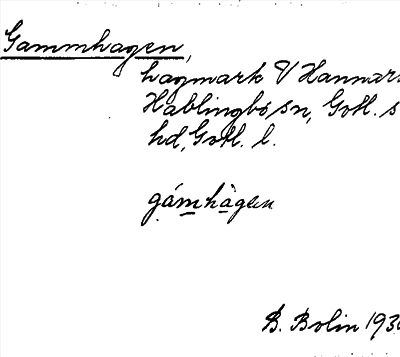 Gammhagen,
hagmark V Hannars
Hablingbo sn, Gotl. s
hd, Gotl. l.
gámhàgen
B. Bolin 193